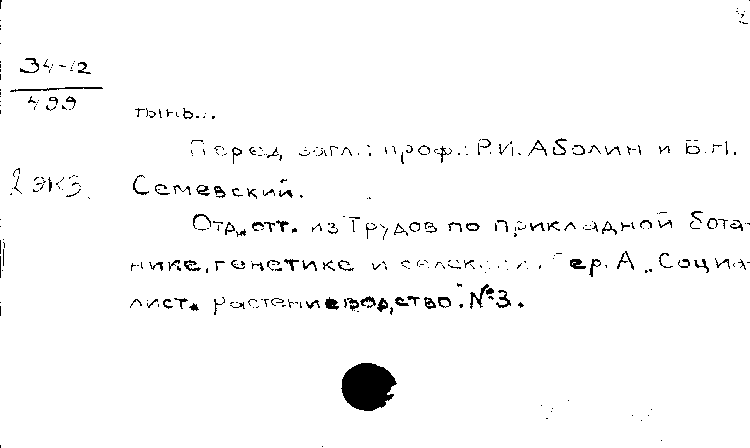 34-12
499
тынь...
Перед загл.: проф.: Р.И. Аболин и Б.Н.
2 экз.
Семевский.
Отд. отт. из Трудов по прикладной бота-
нике, генетике и селекции. Сер. А „Социа-
лист. растениеводство". №3.